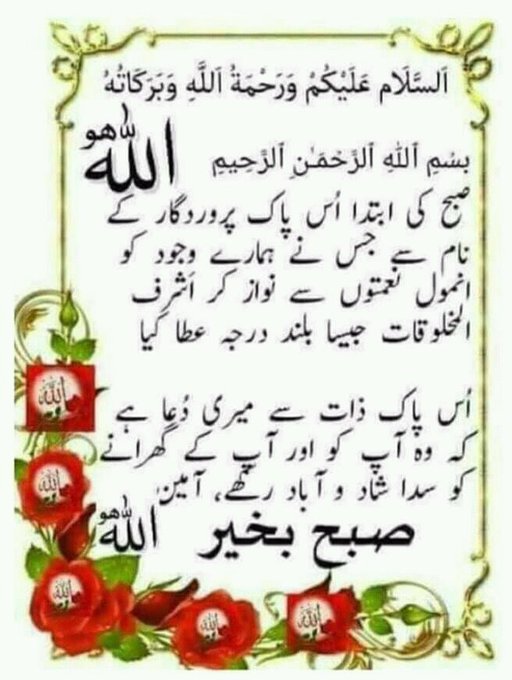 اَلسَّلَام عَلَيْكُمْ وَرَحْمَةُ اللَّهِ وَبَرَكَاتُهُ
بِسْمِ ٱللَّهِ ٱلرَّحْمَـٰنِ ٱلرَّحِيمِ اللّٰه هو
صبح کی ابتدا اُس پاک پروردگار کے
نام سے جس نے ہمارے وجود کو
انمول نعمتوں سے نواز کر اَشرف
المخلوقات جیسا بلند درجہ عطا کیا
اُس پاک ذات سے میری دُعا ہے
کہ وہ آپ کو اور آپ کے گھرانے
کو سدا شاد و آباد رکھے، آمین
صبح بخیر اللّٰه هو
اللّٰه
اللّٰه
اللّٰه
اللّٰه
اللّٰه